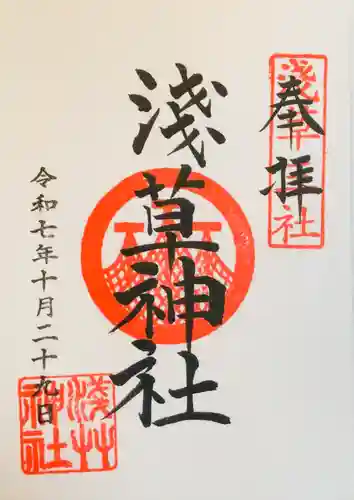 奉拝
淺草神社
淺草神社
令和七年十月二十九日
淺草神社